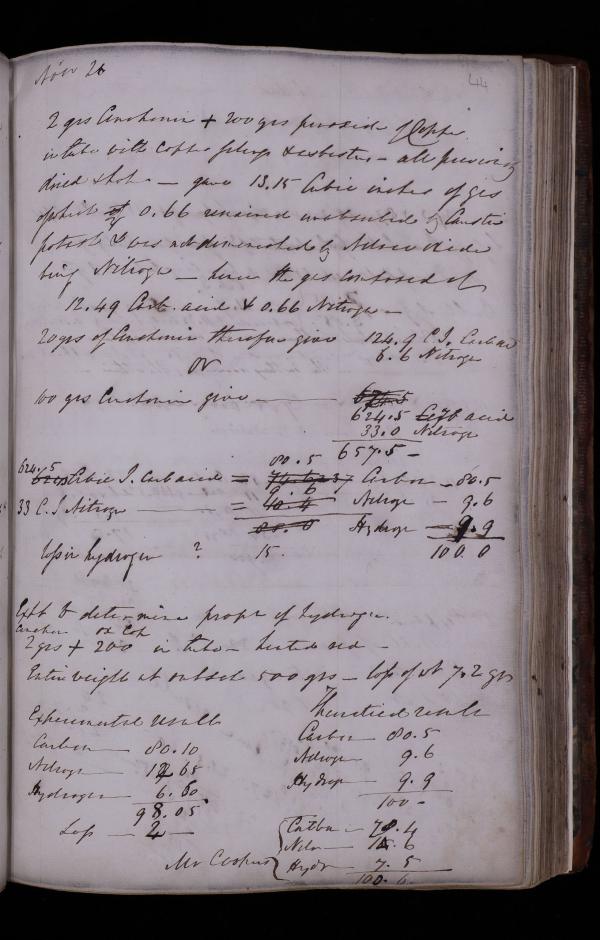 Novr 26
44
2 grs Cinchonin + 200 grs peroxide of Copper
in tube with Copper filings & asbestus - all previously
dried & hot - gave 13.15 Cubic inches of gas
of which 0.66 remained unabsorbed by Caustic
potash & was not diminished by Nitrous Oxide
being Nitrogen - hence the gas composed of
12.49 Carb. acid & 0.66 Nitrogen -
20 grs of Cinchonin therefore give 124.9 C I. Carb acid
6.6 Nitrogen
or
100 grs Cinchonin give
624.5 Carb acid
33.0 Nitrogen
657.5 -
80.5
624.5 Cubic I. Carb acid = Carbon - 80.5
9.6
33 C. I Nitrogen = Nitroge - 9.6
Hydroge - 9.9
loss in hydrogen ? 15. 100.0
Expt to determine propn of hydrogen.
Cinchon ox Cop
2 grs + 200 in tube - heated red -
Entire weight at outset 500 grs - loss of wt 7.2 grs
Experimental results Theoretical results
Carbon - 80.10 Carbon - 80.5
Nitroge - 12.65 Nitroge 9.6
Hydrogen - 6.60 Hydroge - 9.9
98.05 100 -
Loss - 2 -
Carbon - 78.4
Nitro -
Mr Coopers Hydr - 7.5
100.